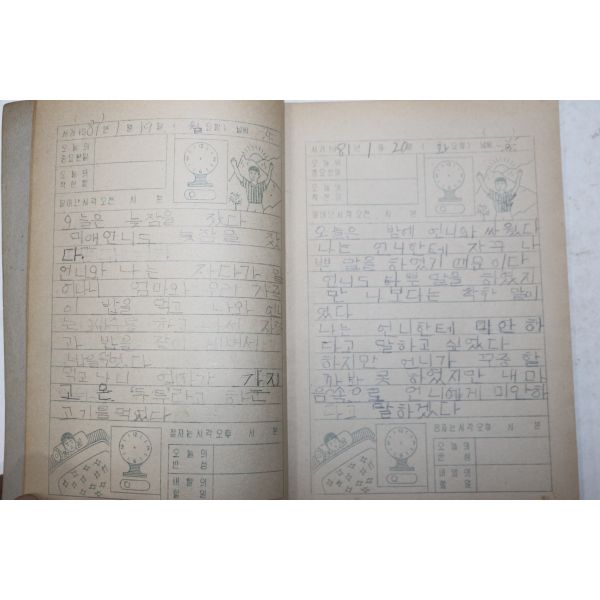 서기 1981년 1월 19일 (월요일) 날씨
오늘의
중요한일
오늘의
착한일
일어난시각오전 시 분
오늘은 늦잠을 잤다
미애언니도 늦잠을 잤
다.
언니와 나는 자다가 일
어나니 엄마와
이 밥을 먹고 나와 언
는 세수를 하고 나서
과 밥을 같이
먹고 나니 가지
고 온 하는
고기를 먹었다
잠자는시각오후 시 분
오늘의
반성
내일의
할일
서기 1981년 1월 20일 (화요일) 날씨
오늘의
중요한일
오늘의
착한일
일어난시각오전 시 분
오늘은 밤에 언니와 싸웠다
나는 언니한테 자꾸 나
쁜 말을 하였기 때문이다
언니도 나쁜 말을 하였지
만 나보다는 착한 말이
었다
나는 언니한테 미안하
다고 말하고 싶었다
하지만 언니가 꾸중 할
까봐 못 하였지만 내 마
음속으로 언니에게 미안하
다고 말하겠다
잠자는시각오후 시 분
오늘의
반성
내일의
할일